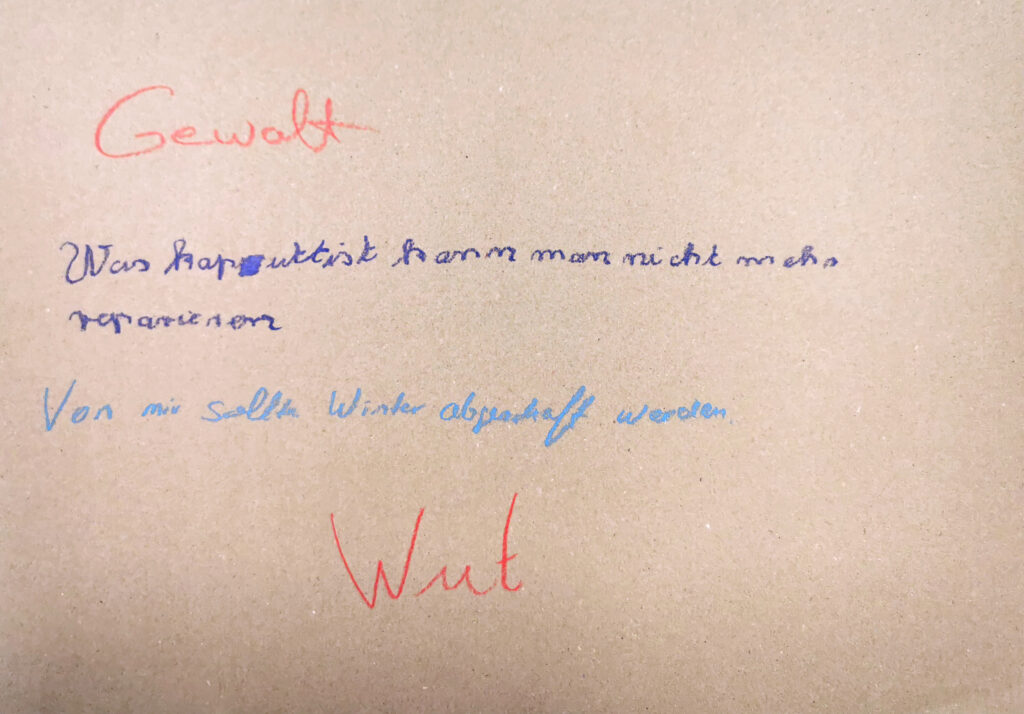 Gewalt
Was kapputtist kann man nicht mehr
reparieren
Von mir sollte Winter abgeschaff werden.
Wut